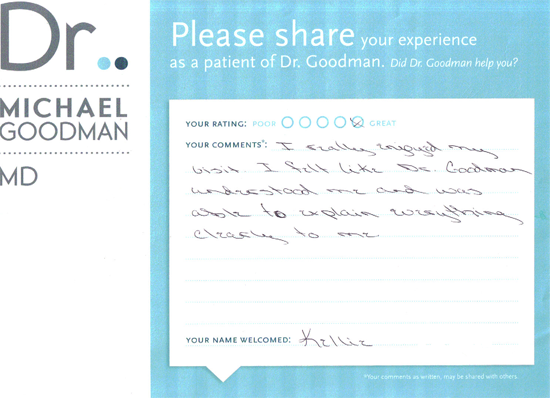 Dr.
MICHAEL
GOODMAN
MD
Please share your experience
as a patient of Dr. Goodman. Did Dr. Goodman help you?
YOUR RATING: POOR GREAT
YOUR COMMENTS*: I really enjoyed my
visit I felt like Dr. Goodman
understood me and was
able to explain everything
clearly to me.
YOUR NAME WELCOMED: Kellie
*Your comments as written, may be shared with others.